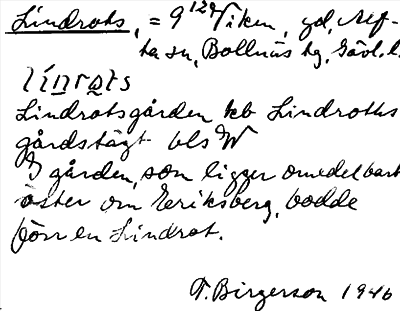 Lindrots, = 9 12a Viken, gd, Alf-
ta sn, Bollnäs tg, Gävl. l.
Lindrotsgården kb Lindroths
gårdstägt bls W
I gården, som ligger omedelbart
öster om Eriksberg, bodde
förr en Lindrot.
F. Birgerson 1946